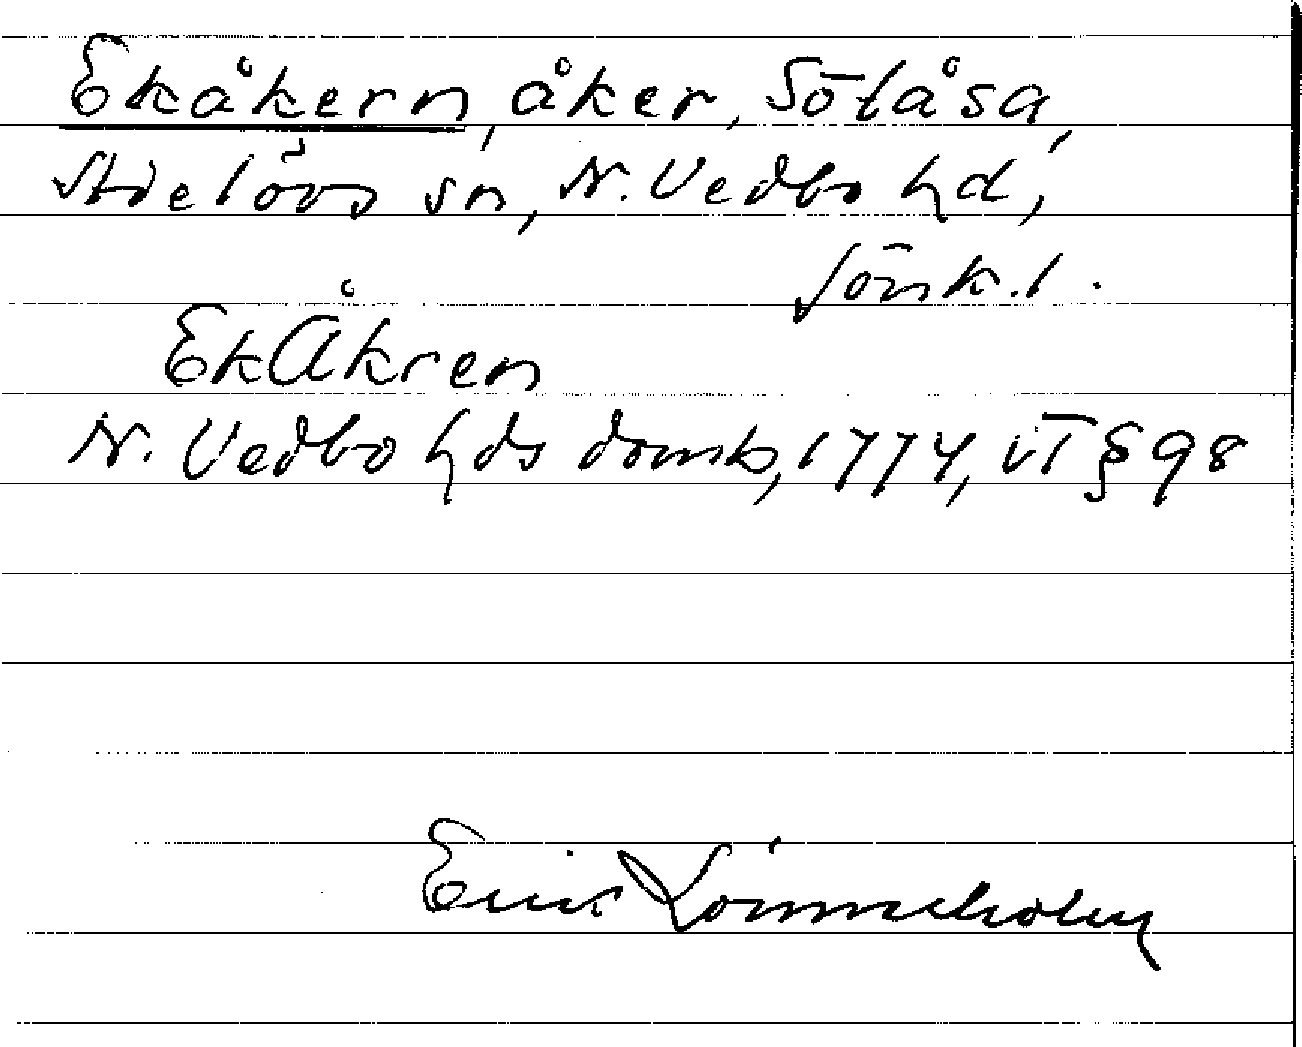 Ekåkern, åker, Sötåsa,
Skielövs sn, N. Vedbo hd,
Jönk. l.
EkÅkren
N. Vedbo hds domb, 1774, VT § 98
Erik Lönnerholm